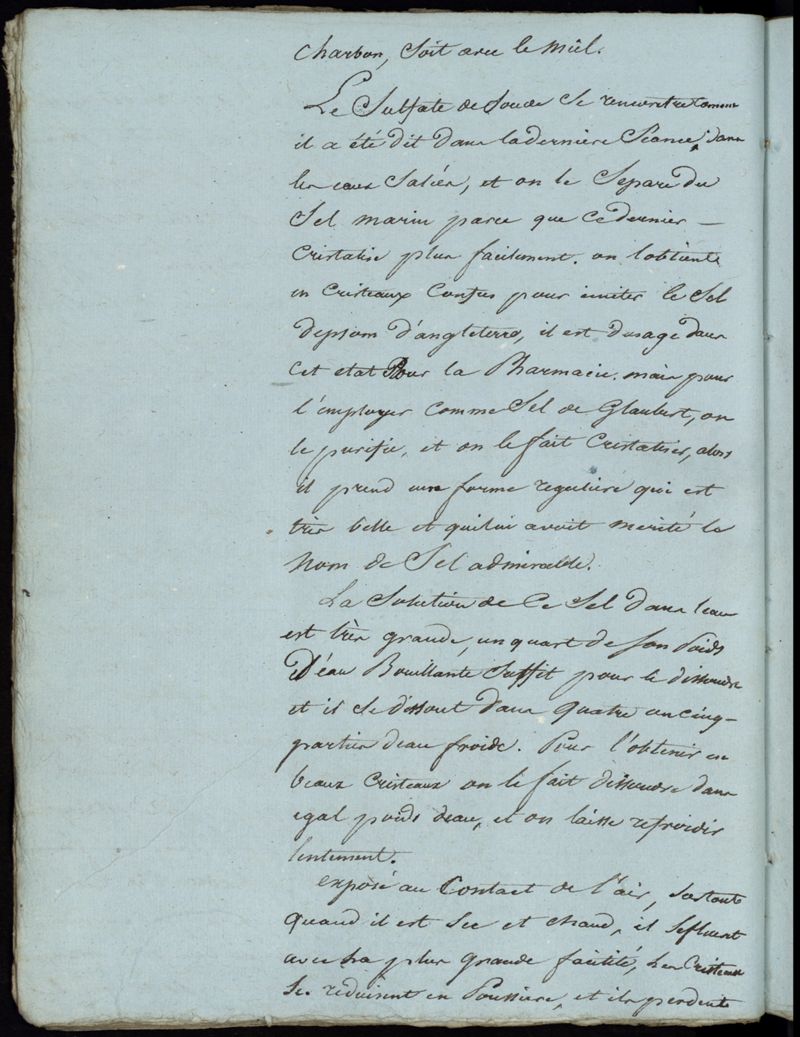 charbon, soit avec le miel.
Le Sulfate de Soude se rencontre comme
il a été dit dans la derniere Séance, dans
les eaux Salées, et on le Separe du
Sel marin parce que ce dernier —
Cristalise plus facilement. on l'obtient
en Cristeaux Confus pour imiter le Sel
depsom d'angleterre, il est dusage dans
cet etat Pour la Pharmacie. mais pour
l'employer comme Sel de Glaubert, on
le purifie, et on le fait Cristaliser, alors
il prend une forme reguliere qui est
très belle et qui lui avoit merité le
Nom de Sel admirable.
La Solution de Ce Sel dans leau
est très grande, un quart de son Poids
D'eau Bouillante Suffit pour le dissoudre
et il se dissout dans quatre ou cinq—
parties deau froide. Pour l'obtenir en
beaux Cristeaux on le fait dissoudre dans
egal poids deau, et on laisse refroidir
lentement.
exposé au Contact de l'air, surtout
quand il est Sec et chaud, il sefleurit
avec la plus grande facilité, Les Cristeaux
Se reduisent en Poussiere, et ils perdent